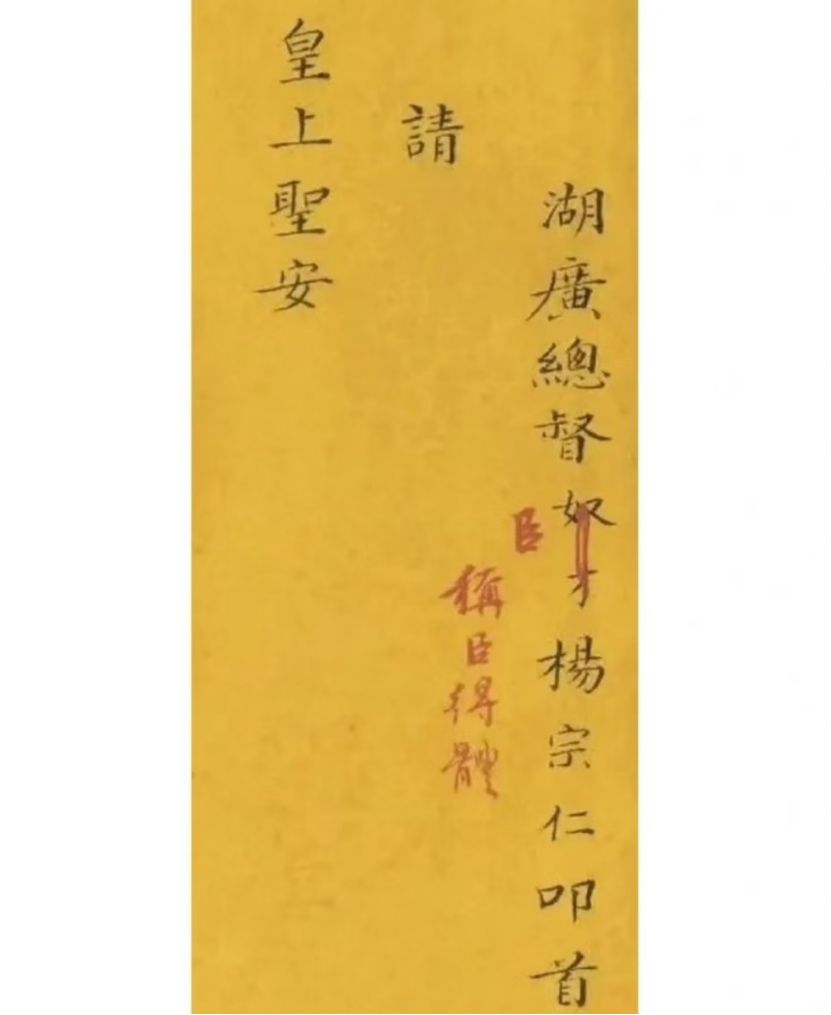 湖廣總督奴才楊宗仁叩首
臣
稱臣得體
請
皇上聖安